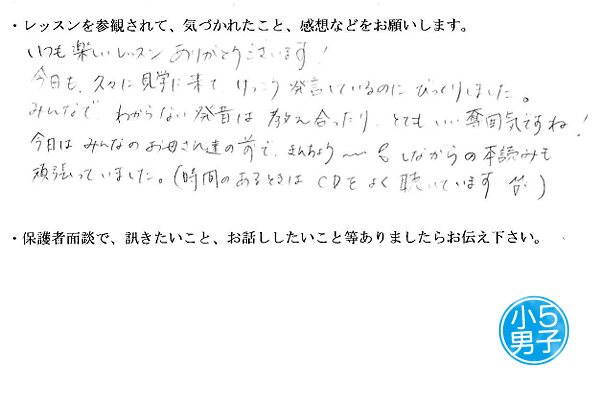 ・レッスンを参観されて、気づかれたこと、感想などをお願いします。
いつも楽しいレッスン ありがとうございます!
今日も、久々に見学に来て けっこう発言しているのに びっくりしました。
みんなで、わからない発音は 教え合ったり、とてもいい雰囲気ですね!
今日は みんなのお母さん達の前で、きんちょう〜 しながらの本読みも
頑張っていました。(時間のあるときは CDをよく聴いています )
・保護者面談で、訊きたいこと、お話ししたいこと等ありましたらお伝え下さい。
小5
男子